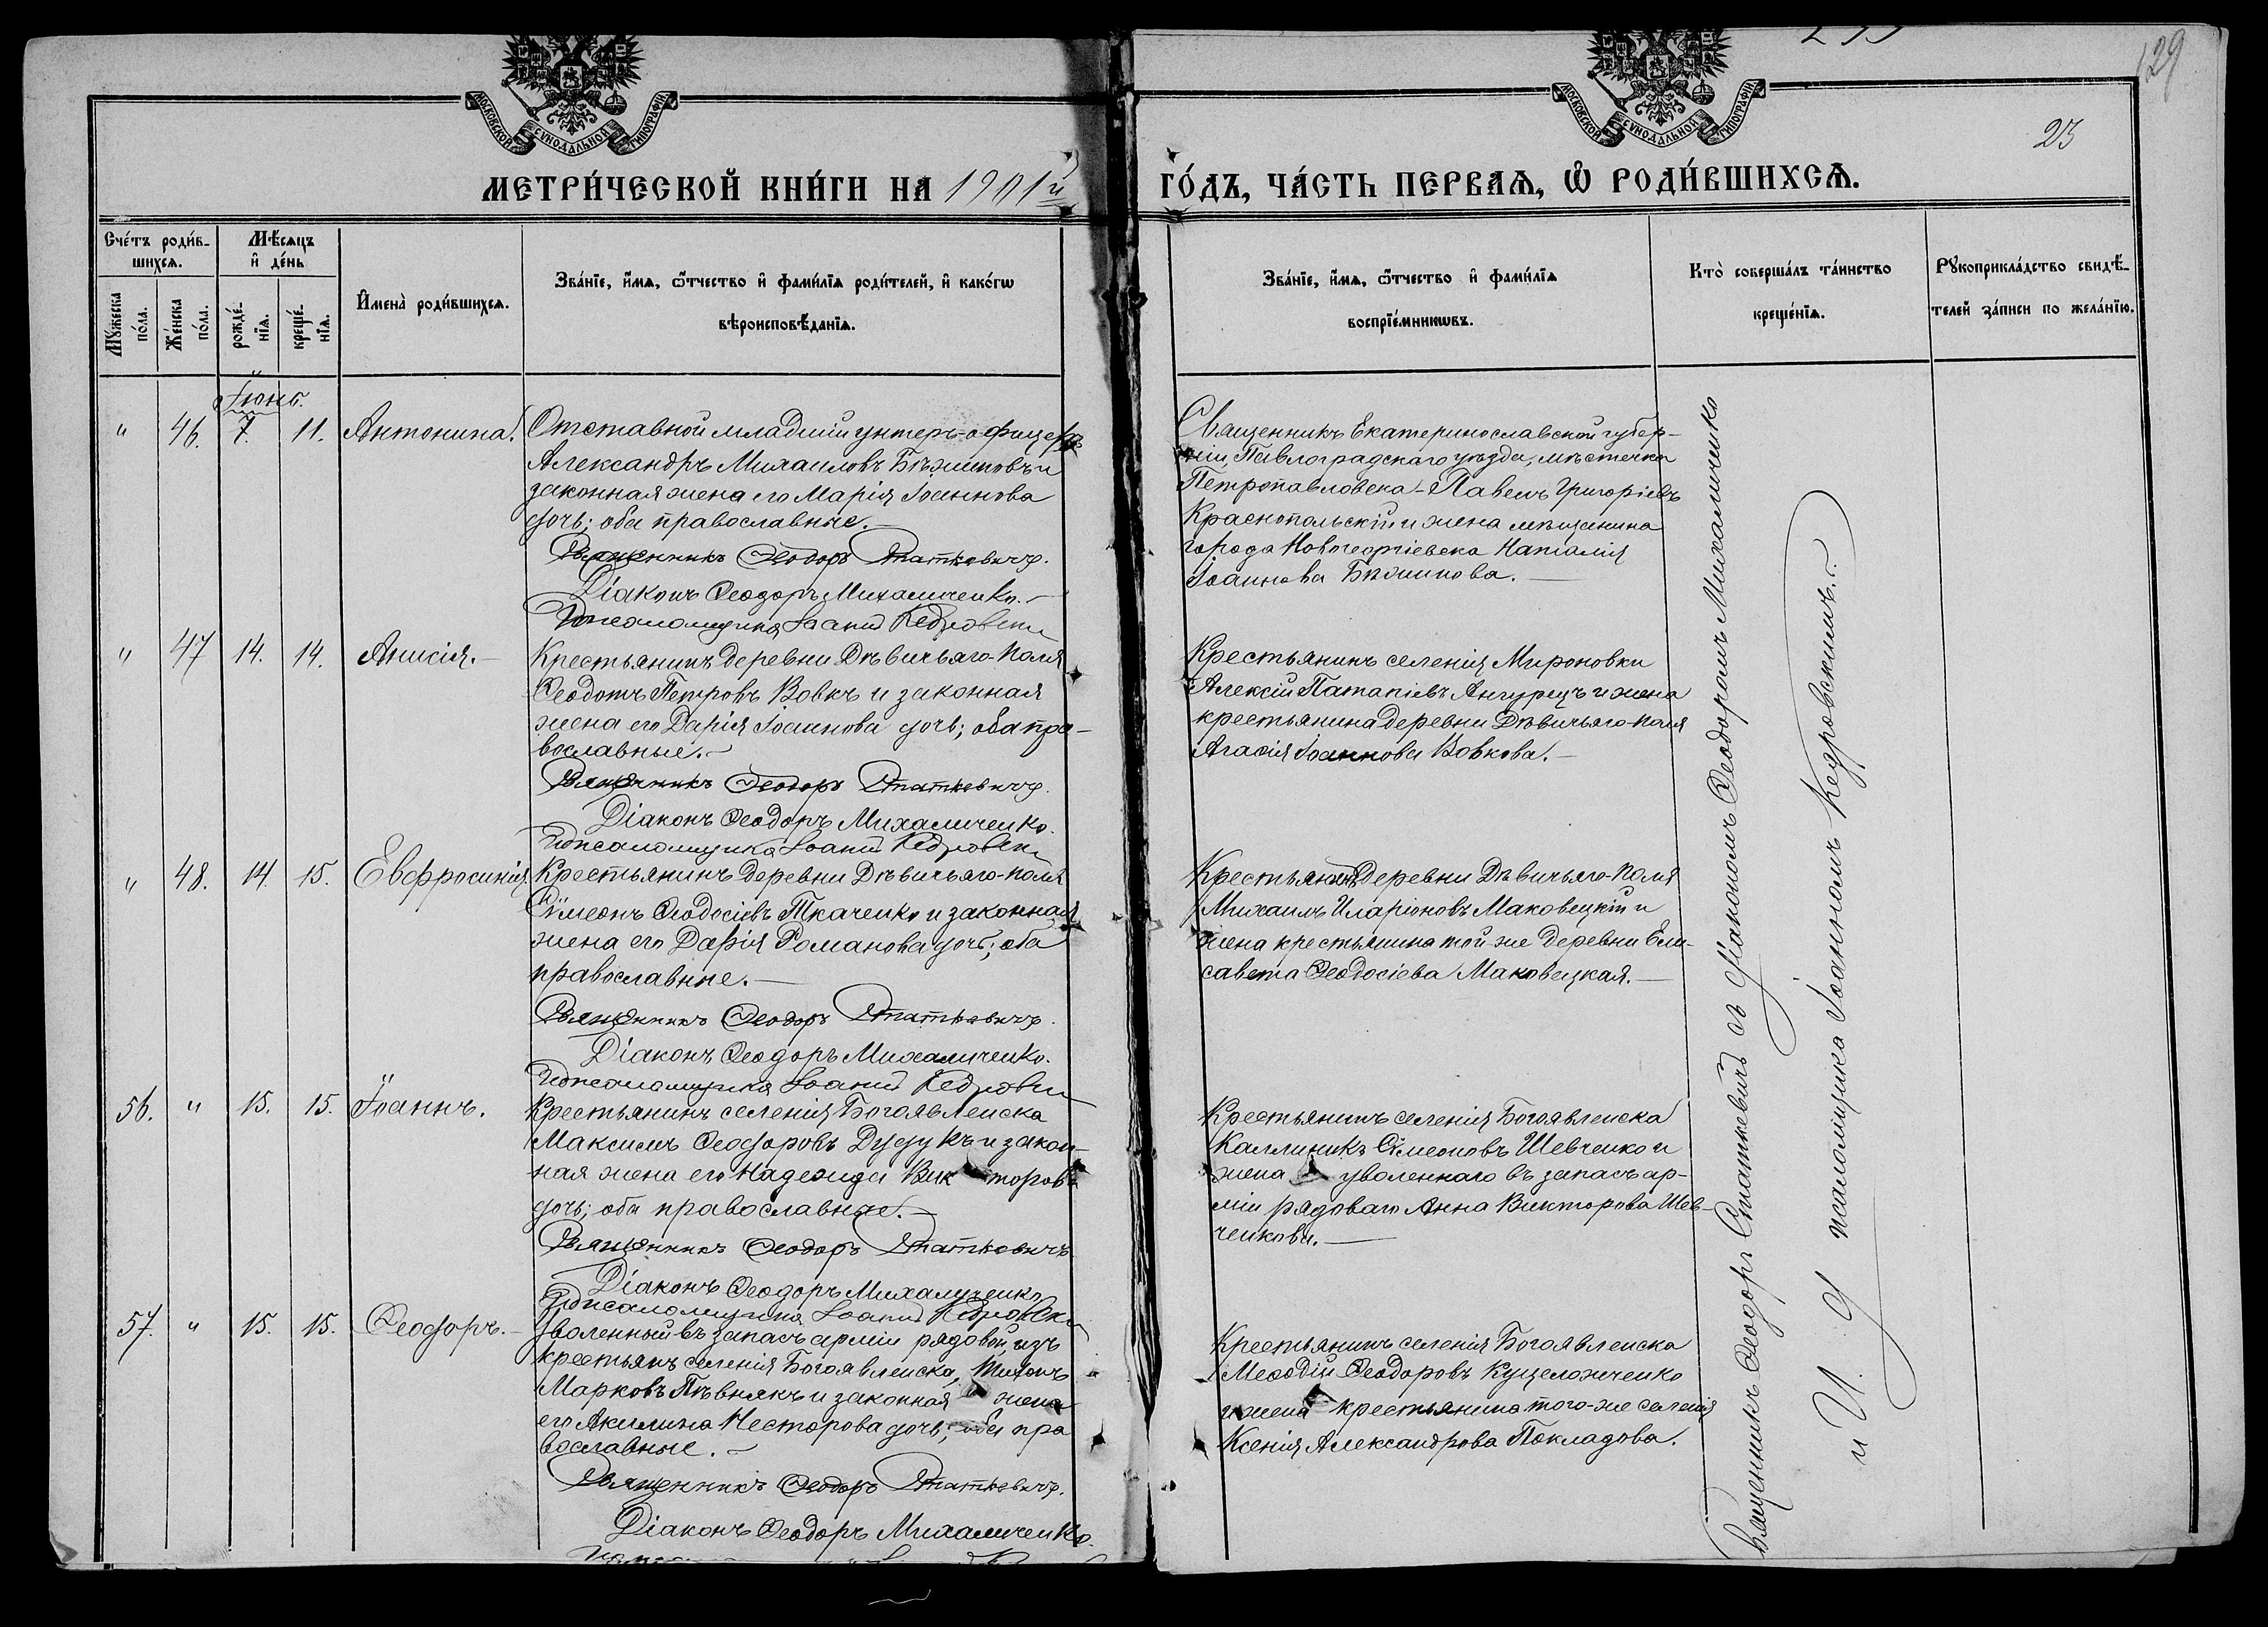 129
23
МОСКОВСКОЙ СѴНОДАЛЬНОЙ ТИПОГРАФІИ
МОСКОВСКОЙ СѴНОДАЛЬНОЙ ТИПОГРАФІИ
МЕТРИ́ЧЕСКОЙ КНИ́ГИ НА 1901й ГО́ДЪ, ЧА́СТЬ ПЕРВАѦ, Ѡ РОДИ́ВШИХСѦ.
Сче́тъ роди́в-
шихсѧ.
Мѣ́сѧцъ
и҆ де́нь
Мꙋ́жеска
по́ла.
Же́нска
по́ла.
рожде́-
нїѧ.
креще́-
нїѧ.
И҆мена̀ роди́вшихсѧ.
Зва́нїе, и҆́мѧ, ѻ҆́тчество и҆ фами́лїѧ роди́телей, и҆ како́гѡ
вѣроисповѣ́данїѧ.
Зва́нїе, и҆́мѧ, ѻ҆́тчество и҆ фами́лїѧ
воспрїе́мникѡвъ.
Кто̀ соверша́лъ та́инство
креще́нїѧ.
Рꙋкоприкла́дство свидѣ́-
телей за́писи по жела́нїю.
Іюнь.
" 46. 7. 11. Антонина.
Отставной младшій унтеръ-офицеръ
Александръ Михаиловъ Бѣжиновъ и
законная жена его Марія Іоаннова
дочь; оба православные.
Священникъ Ѳеодоръ Статкевичъ.
Діаконъ Ѳеодоръ Михаличенко.
Священникъ Екатеринославской губер-
ніи, Павлоградскаго уѣзда, мѣстечка
Петропавловска - Павелъ Григоріевъ
Краснопольскій и жена мѣщанина
города Новогеоргіевска Наталія
Іоаннова Бѣжинова.
" 47 14. 14. Анисія.
Крестьянинъ деревни Дѣвичьяго-Поля
Ѳеодотъ Петровъ Вовкъ и законная
жена его Дарія Іоаннова дочь; оба пра-
вославные.
Священникъ Ѳеодоръ Статкевичъ.
Діаконъ Ѳеодоръ Михаличенко.
Крестьянинъ селенія Мироновки
Алексій Патапіевъ Ангурецъ и жена
крестьянина деревни Дѣвичьяго-поля
Агаѳія Іоаннова Вовкова.
" 48. 14. 15. Евфросинія.
Крестьянинъ деревни Дѣвичьяго-поля
Сѵмеонъ Ѳеодосіевъ Ткаченко и законная
жена его Дарія Романова дочь; оба
православные.
Священникъ Ѳеодоръ Статкевичъ.
Діаконъ Ѳеодоръ Михаличенко.
Крестьянинъ деревни Дѣвичьяго-Поля
Михаилъ Иларіоновъ Маковецкій и
жена крестьянина той-же деревни Ели-
савета Ѳеодосіева Маковецкая.
56. " 15. 15. Іоаннъ.
Крестьянинъ селенія Богоявленска
Максимъ Ѳеодоровъ Дудукъ и закон-
ная жена его Надежда Викторова
дочь; оба православные.
Священникъ Ѳеодоръ Статкевичъ
Діаконъ Ѳеодоръ Михаличенко
Крестьянинъ селенія Богоявленска
Каллиникъ Сѵмеоновъ Шевченко и
жена уволеннаго въ запасъ ар-
міи рядоваго Анна Викторова Шев-
ченкова.
57. " 15. 15. Ѳеодоръ.
Уволенный въ запасъ арміи рядовой, изъ
крестьянъ селенія Богоявленска, Тихонъ
Марковъ Пѣвнякъ и законная жена
его Акилина Несторова дочь; оба пра
вославные.
Священникъ Ѳеодоръ Статкевичъ.
Діаконъ Ѳеодоръ Михаличенко.
Крестьянинъ селенія Богоявленска
Меѳодій Ѳеодоровъ Куцеложченко
и жена крестьянина того-же селенія
Ксенія Александрова Покладова.
Священникъ Ѳеодоръ Статкевичъ съ діакономъ Ѳеодоромъ Михаличенко
и И. д псаломщика Іоанномъ Кедровскимъ.